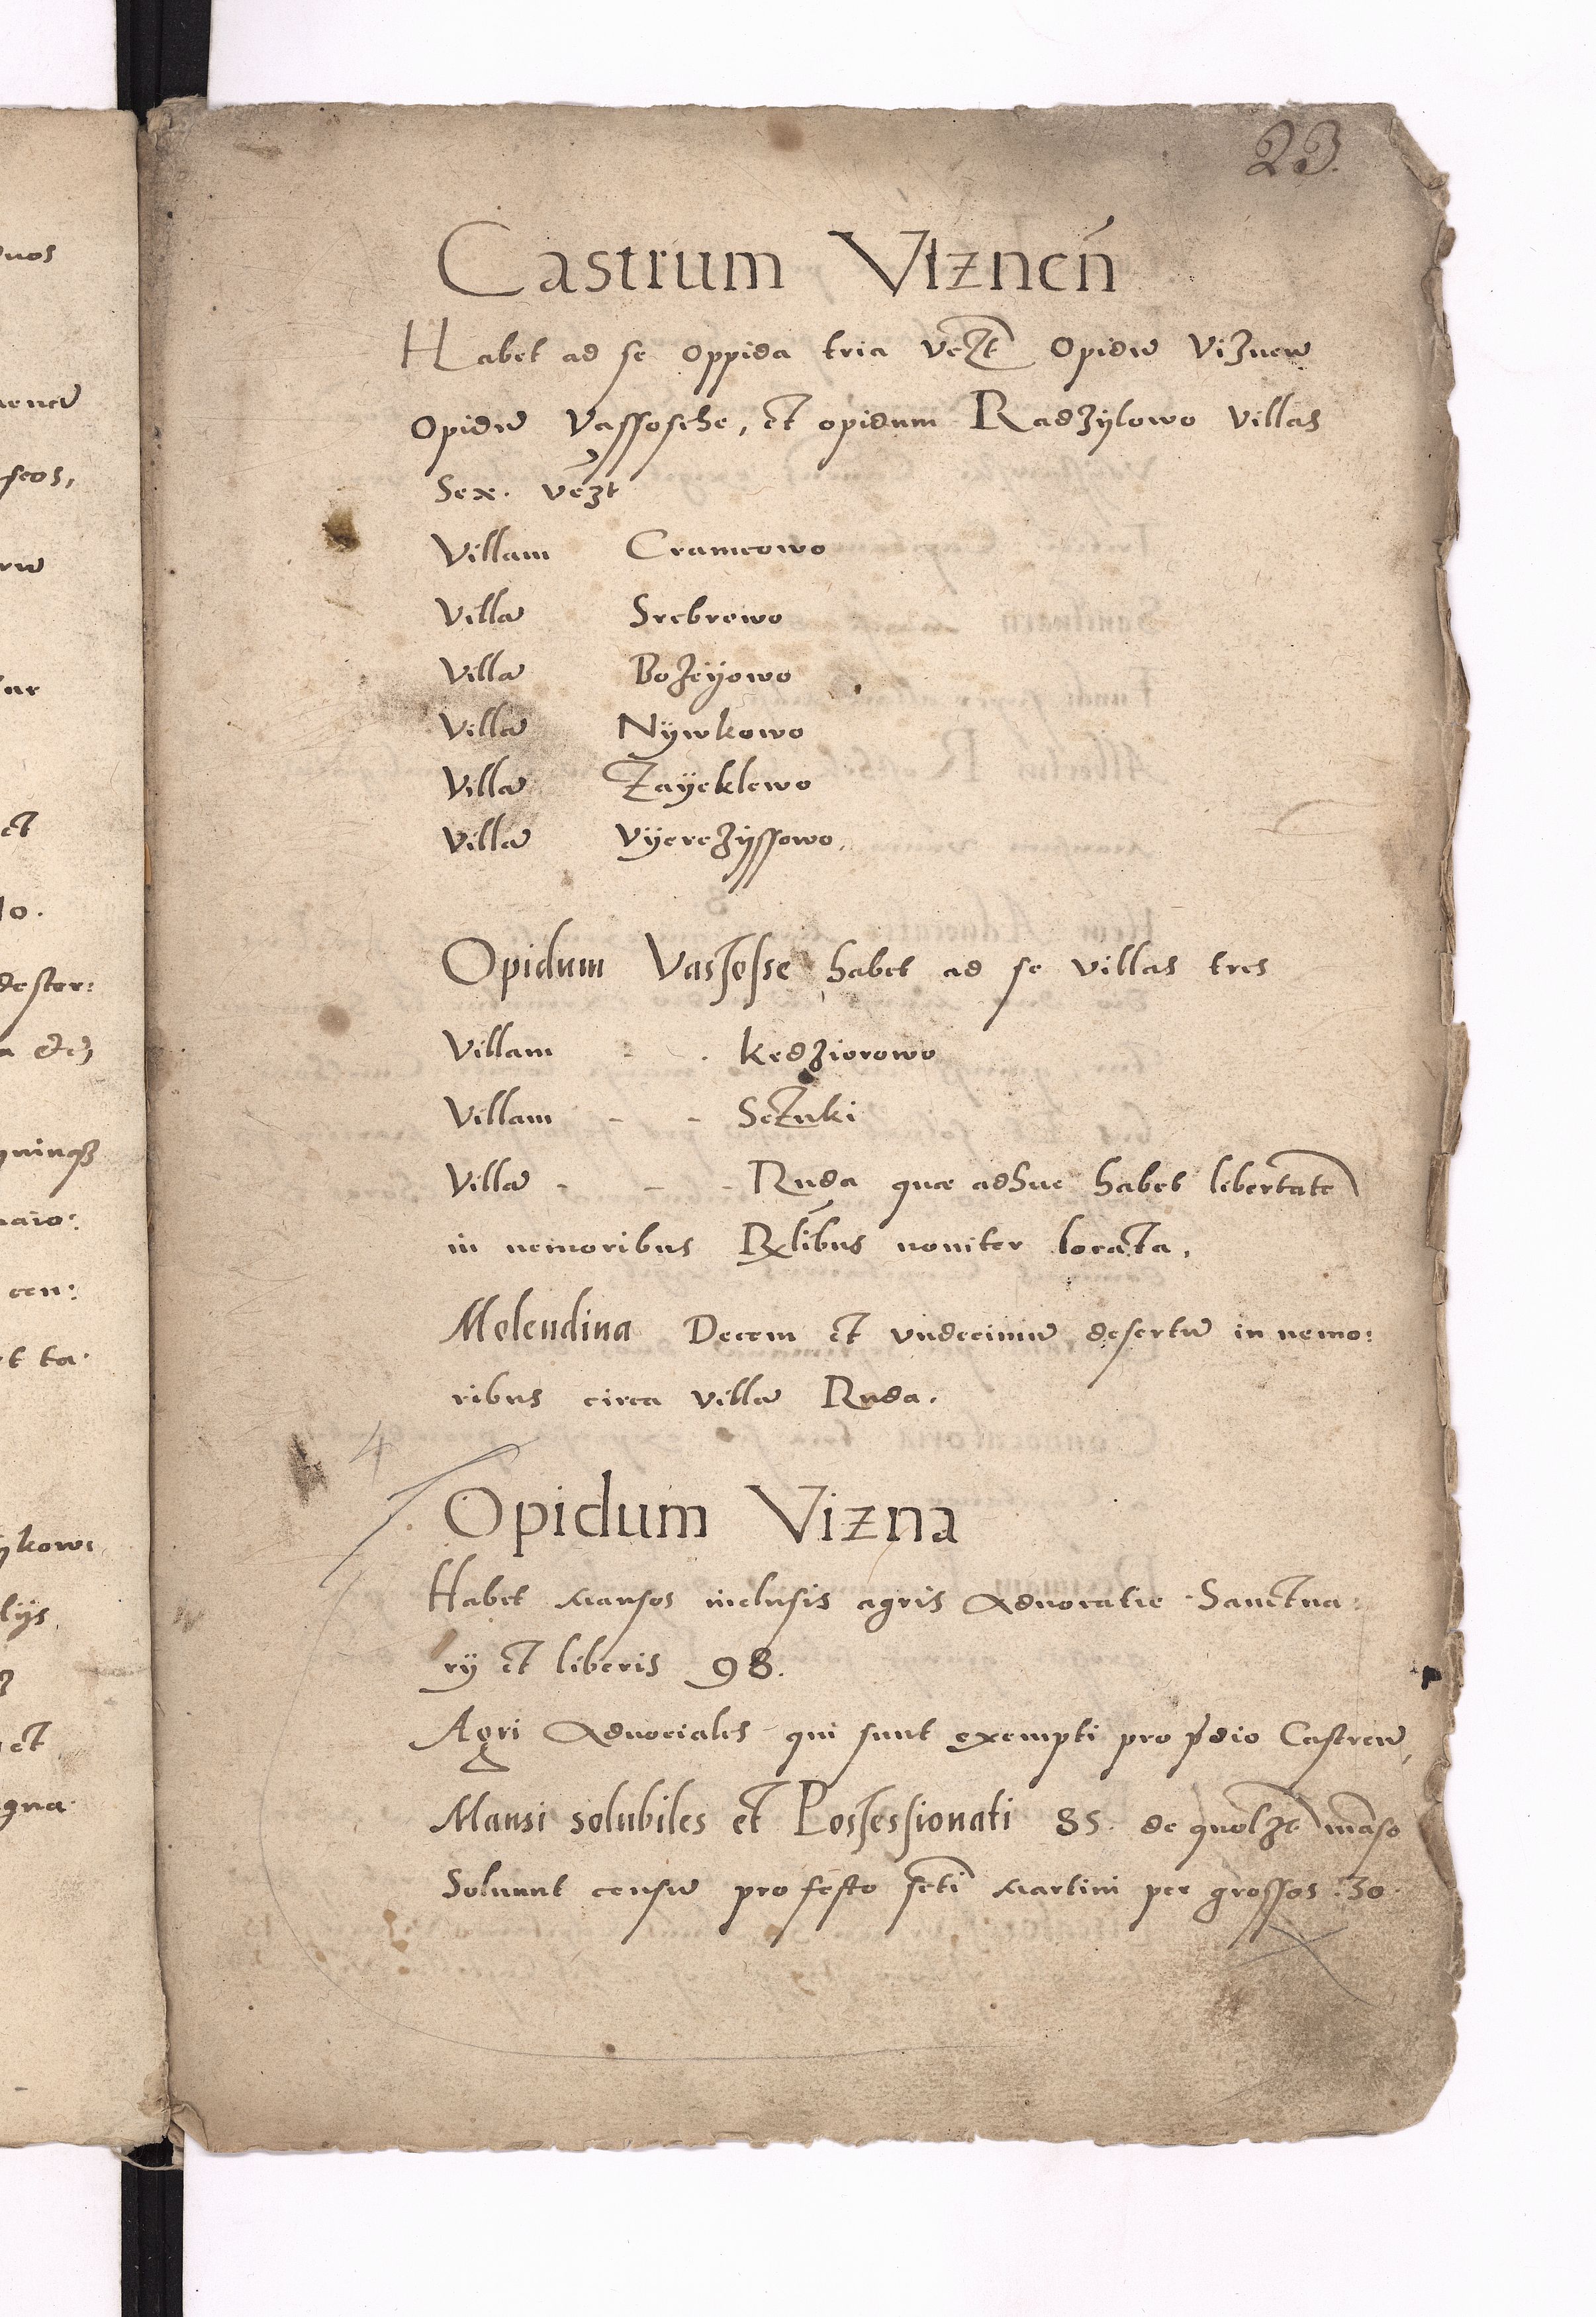 23.
Castrum Viznen̄
Habet ad se oppida tria vezt Opidū Viznen̄
Opidū Vassosche, et opidum Radzylowo Villas
Sex. vezt
Villam Cramcowo
Villā Srebrowo
Villā Bozeyowo
Villā Nywkowo
Villā Zayeklewo
Villā Vyerezyssowo.
Opidum Vassosse habet ad se villas tres
Villam - . Kedziorowo
Villam - - Sczuki
Villā - - - Ruda quae adhuc habet libertatē
in nemoribus Rlibus noviter locata.
Molendina Decem et vndecimū desertū in nemo:
ribus circa villā Ruda.
4
Opidum Vizna
Habet Mansos inclusis agris Advocatie Sanctua:
rij et liberis 98.
Agri Advociales qui sunt exempti pro p̄dio Castren̄,
Mansi solubiles et Possessionati 85. de quolzt manso
Soluunt censū pro festo scti Martini per grossos .30.